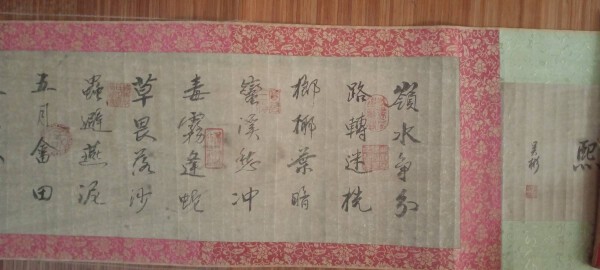 熙
嶺水争分
路轉迷桄
榔椰葉暗
蠻溪愁冲
毒霧逢蛇
草畏落沙
蟲避燕泥
五月畬田